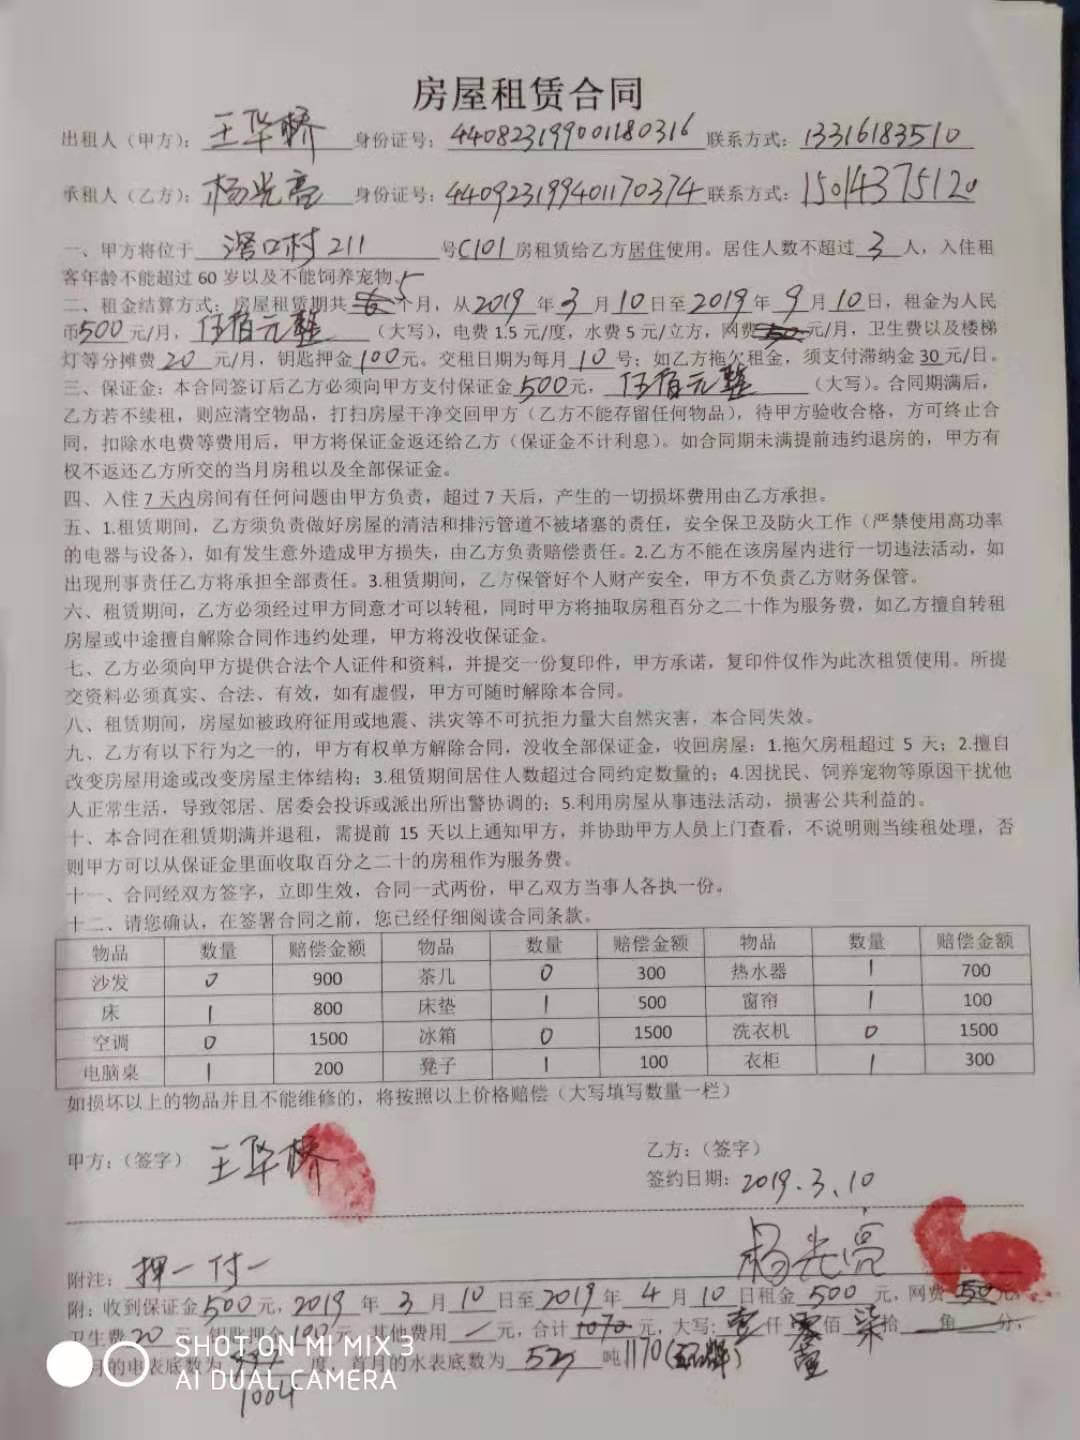 房屋租赁合同
出租人（甲方）：王华桥 身份证号：440823199001180316 联系方式：13316183510
承租人（乙方）：杨光亮 身份证号：440923199401170374 联系方式：15014375120
一、甲方将位于 滘口村211 号C101房租赁给乙方居住使用。居住人数不超过 3 人，入住租
客年龄不能超过 60 岁以及不能饲养宠物。
二、租金结算方式：房屋租赁期共 6 5 个月，从2019 年 3 月 10 日至 2019 年 9 月 10 日，租金为人民
币500 元/月，伍佰元整（大写），电费 1.5 元/度，水费 5 元/立方，网费 50 元/月，卫生费以及楼梯
灯等分摊费 20 元/月，钥匙押金 100 元。交租日期为每月 10 号；如乙方拖欠租金，须支付滞纳金 30 元/日。
三、保证金：本合同签订后乙方必须向甲方支付保证金 500 元，伍佰元整（大写）。合同期满后，
乙方若不续租，则应清空物品，打扫房屋干净交回甲方（乙方不能存留任何物品），待甲方验收合格，方可终止合
同，扣除水电费等费用后，甲方将保证金返还给乙方（保证金不计利息）。如合同期未满提前违约退房的，甲方有
权不返还乙方所交的当月房租以及全部保证金。
四、入住 7 天内房间有任何问题由甲方负责，超过 7 天后，产生的一切损坏费用由乙方承担。
五、1.租赁期间，乙方须负责做好房屋的清洁和排污管道不被堵塞的责任，安全保卫及防火工作（严禁使用高功率
的电器与设备），如有发生意外造成甲方损失，由乙方负责赔偿责任。2.乙方不能在该房屋内进行一切违法活动，如
出现刑事责任乙方将承担全部责任。3.租赁期间，乙方保管好个人财产安全，甲方不负责乙方财务保管。
六、租赁期间，乙方必须经过甲方同意才可以转租，同时甲方将抽取房租百分之二十作为服务费，如乙方擅自转租
房屋或中途擅自解除合同作违约处理，甲方将没收保证金。
七、乙方必须向甲方提供合法个人证件和资料，并提交一份复印件，甲方承诺，复印件仅作为此次租赁使用。所提
交资料必须真实、合法、有效，如有虚假，甲方可随时解除本合同。
八、租赁期间，房屋如被政府征用或地震、洪灾等不可抗拒力量大自然灾害，本合同失效。
九、乙方有以下行为之一的，甲方有权单方解除合同，没收全部保证金，收回房屋：1.拖欠房租超过 5 天；2.擅自
改变房屋用途或改变房屋主体结构；3.租赁期间居住人数超过合同约定数量的；4.因扰民、饲养宠物等原因干扰他
人正常生活，导致邻居、居委会投诉或派出所出警协调的；5.利用房屋从事违法活动，损害公共利益的。
十、本合同在租赁期满并退租，需提前 15 天以上通知甲方，并协助甲方人员上门查看，不说明则当续租处理，否
则甲方可以从保证金里面收取百分之二十的房租作为服务费。
十一、合同经双方签字，立即生效，合同一式两份，甲乙双方当事人各执一份。
十二、请您确认，在签署合同之前，您已经仔细阅读合同条款。
物品 数量 赔偿金额 物品 数量 赔偿金额 物品 数量 赔偿金额
沙发 0 900 茶几 0 300 热水器 1 700
床 1 800 床垫 1 500 窗帘 1 100
空调 0 1500 冰箱 0 1500 洗衣机 0 1500
电脑桌 1 200 凳子 1 100 衣柜 1 300
如损坏以上的物品并且不能维修的，将按照以上价格赔偿（大写填写数量一栏）
甲方：（签字）王华桥 乙方：（签字）
签约日期：2019.3.10
杨光亮
附注：押一付一
附：收到保证金 500 元，2019 年 3 月 10 日至 2019 年 4 月 10 日租金 500 元，网费 50 元，
卫生费 20 元，钥匙押金 100 元，其他费用 / 元，合计 1070 元，大写：壹仟零佰柒拾 角 分，
月的电表底数为 度，首月的水表底数为 吨 1170
壹
1004
SHOT ON MI MIX 3
AI DUAL CAMERA